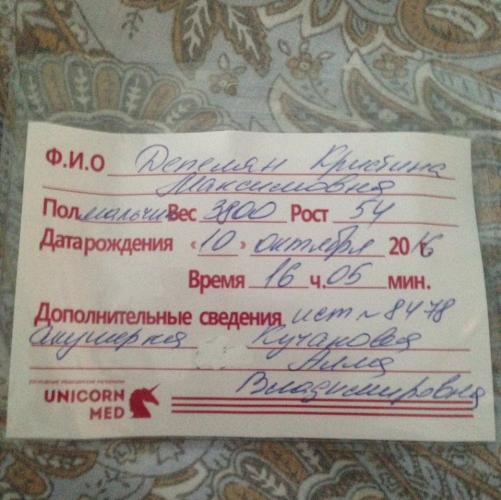 Ф.И.О Депелян Кристина
Максимовна
Пол мальчик Вес 3800 Рост 54
Дата рождения «10» октября 2016 г.
Время 16 ч. 05 мин.
Дополнительные сведения ист №8478
акушерка Кучакова
Алла
Владимировна
UNICORN
MED